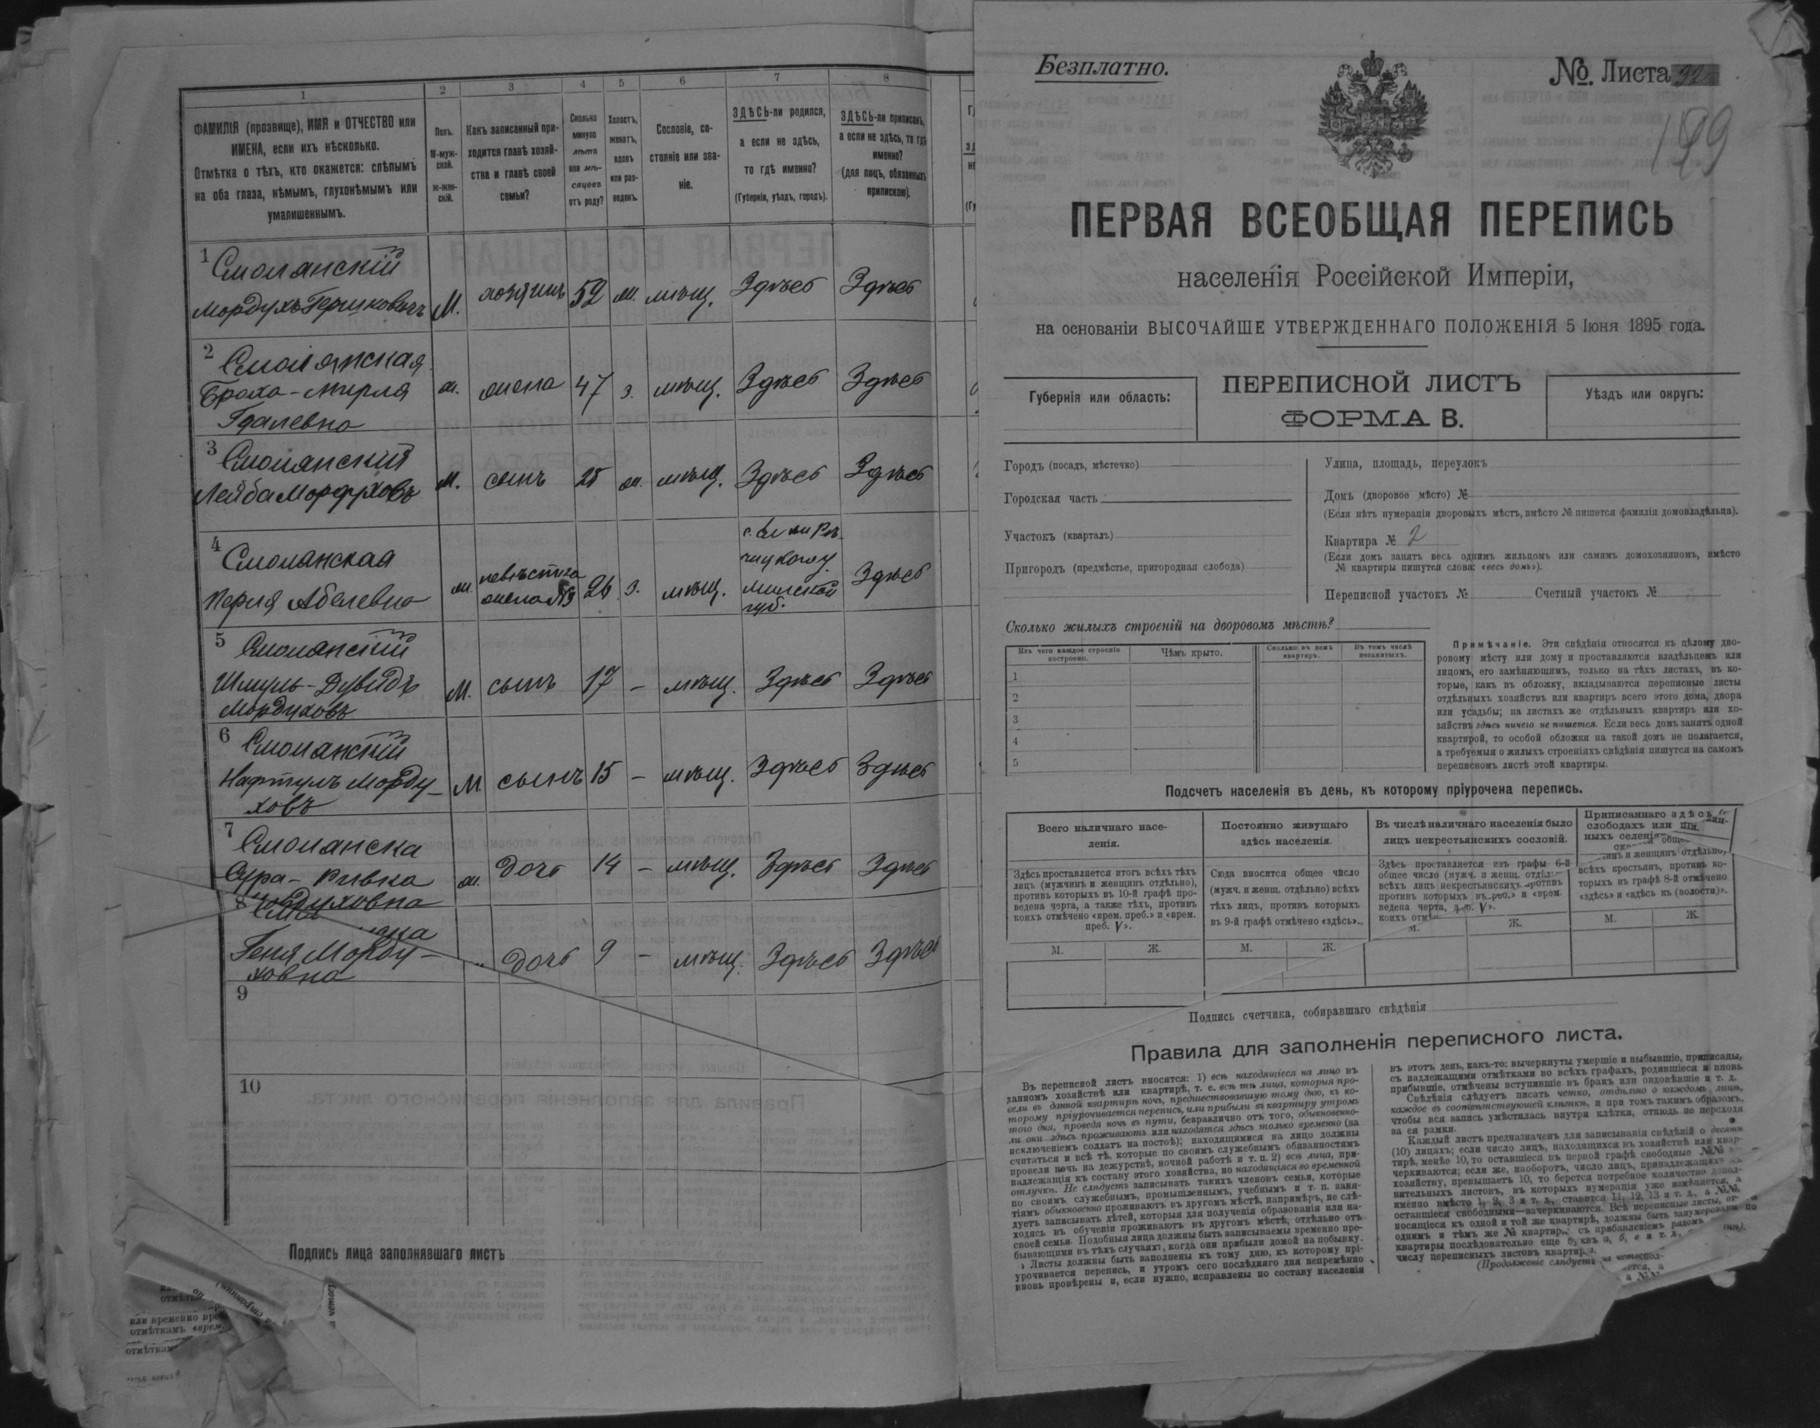 1 2 3 4 5 6 7 8
ФАМИЛІЯ (прозвище), ИМЯ и ОТЧЕСТВО или
ИМЕНА, если ихъ нѣсколько.
Отмѣтка о тѣхъ, кто окажется: слѣпымъ
на оба глаза, нѣмымъ, глухонѣмымъ или
умалишеннымъ.
Полъ.
М-муж-
ской.
ж-жен-
скій.
Какъ записанный при-
ходится главѣ хозяй-
ства и главѣ своей
семьи?
Сколько
минуло
лѣтъ
или мѣ-
сяцевъ
отъ роду?
Холостъ,
женатъ,
вдовъ
или раз-
веденъ.
Сословіе, со-
стояніе или зва-
ніе.
ЗДѢСЬ-ли родился,
а если не здѣсь,
то гдѣ именно?
(Губернія, уѣздъ, городъ).
ЗДѢСЬ-ли приписанъ,
а если не здѣсь, то гдѣ
именно?
(для лицъ, обязанныхъ
припискою).
1 Смолянскій
Мордухъ Гершковичъ М. хозяинъ 52 ж. мѣщ. Здѣсь Здѣсь
2 Смолянская
Броха-Мирля ж. жена 47 з. мѣщ. Здѣсь Здѣсь
Гдалевна
3 Смолянскій
Лейба Мордуховъ М. сынъ 25 ж. мѣщ. Здѣсь Здѣсь
4 Смолянская
Перля Абелевна ж. невѣстка
жена №3 26 з. мѣщ.
Минской
губ. Здѣсь
5 Смолянскій
Шмуль-Дувидъ М. сынъ 17 – мѣщ. Здѣсь Здѣсь
Мордуховъ
6 Смолянскій
Нафтуль Морду- М сынъ 15 – мѣщ. Здѣсь Здѣсь
ховъ
7 Смолянска
Сура-Ривка ж. дочь 14 – мѣщ. Здѣсь Здѣсь
8
Геня Морду- дочь 9 – мѣщ. Здѣсь Здѣсь
ховна
9
10
Подпись лица заполнявшаго листъ
Безплатно.
№. Листа 92
199
ПЕРВАЯ ВСЕОБЩАЯ ПЕРЕПИСЬ
населенія Россійской Имперіи,
на основаніи ВЫСОЧАЙШЕ УТВЕРЖДЕННАГО ПОЛОЖЕНІЯ 5 Іюня 1895 года.
Губернія или область:
ПЕРЕПИСНОЙ ЛИСТЪ
ФОРМА В.
Уѣздъ или округъ:
Городъ (посадъ, мѣстечко)
Городская часть
Участокъ (кварталъ)
Пригородъ (предмѣстье, пригородная слобода)
Улица, площадь, переулокъ
Домъ (дворовое мѣсто) №
(Если нѣтъ нумераціи дворовыхъ мѣстъ, вмѣсто № пишется фамилія домовладѣльца).
Квартира № 2
(Если домъ занятъ весь однимъ жильцомъ или самимъ домохозяиномъ, вмѣсто
№ квартиры пишутся слова: «весь домъ»).
Переписной участокъ № Счетный участокъ №
Сколько жилыхъ строеній на дворовомъ мѣстѣ?
Изъ чего каждое строеніе
построено.
Чѣмъ крыто.
Сколько въ немъ
квартиръ.
Въ томъ числѣ
незанятыхъ.
1
2
3
4
5
Примѣчаніе. Эти свѣдѣнія относятся къ цѣлому дво-
ровому мѣсту или дому и проставляются владѣльцемъ или
лицомъ, его замѣняющимъ, только на тѣхъ листахъ, въ ко-
торые, какъ въ обложку, вкладываются переписные листы
отдѣльныхъ хозяйствъ или квартиръ всего этого дома, двора
или усадьбы; на листахъ же отдѣльныхъ квартиръ или хо-
зяйствъ здѣсь ничего не пишется. Если весь домъ занятъ одной
квартирой, то особой обложки на такой домъ не полагается,
а требуемыя о жилыхъ строеніяхъ свѣдѣнія пишутся на самомъ
переписномъ листѣ этой квартиры.
Подсчетъ населенія въ день, къ которому пріурочена перепись.
Всего наличнаго насе-
ленія.
Здѣсь проставляется итогъ всѣхъ тѣхъ
лицъ (мужчинъ и женщинъ отдѣльно),
противъ которыхъ въ 10-й графѣ про-
ведена черта, а также тѣхъ, противъ
коихъ отмѣчено «врем. преб.» и «врем.
преб. V».
М. Ж.
Постоянно живущаго
здѣсь населенія.
Сюда вносится общее число
(мужч. и женщ. отдѣльно) всѣхъ
тѣхъ лицъ, противъ которыхъ
въ 9-й графѣ отмѣчено «здѣсь».
М. Ж.
Въ числѣ наличнаго населенія было
лицъ некрестьянскихъ сословій.
Здѣсь проставляется изъ графы 6-й
общее число (мужч. и женщ. отдѣл
всѣхъ лицъ некрестьянскихъ противъ
противъ которыхъ въ
ведена черта,
коихъ
М. Ж.
Приписаннаго здѣсь
слободахъ или
ныхъ
и женщинъ отдѣльно,
всѣхъ крестьянъ, противъ ко-
торыхъ въ графѣ 8-й отмѣчено
«здѣсь» и «здѣсь къ (волости)».
М. Ж.
Подпись счетчика, собиравшаго свѣдѣнія
Правила для заполненія переписного листа.
Въ переписной листъ вносятся: 1) всѣ находящіеся на лицо въ
данномъ хозяйствѣ или квартирѣ, т. е. всѣ тѣ лица, которыя про-
вели въ данной квартирѣ ночь, предшествовавшую тому дню, къ ко-
торому пріурочивается перепись, или прибыли въ квартиру утромъ
того дня, проведя ночь въ пути, безразлично отъ того, обыкновенно-
ли они здѣсь проживаютъ или находятся здѣсь только временно (за
исключеніемъ солдатъ на постоѣ); находящимися на лицо должны
считаться и всѣ тѣ, которые по своимъ служебнымъ обязанностямъ
провели ночь на дежурствѣ, ночной работѣ и т. п. 2) всѣ лица, при-
надлежащія къ составу этого хозяйства, но находящіяся во временной
отлучкѣ. Не слѣдуетъ записывать такихъ членовъ семьи, которые
по своимъ служебнымъ, промышленнымъ, учебнымъ и т. п. заня-
тіямъ обыкновенно проживаютъ въ другомъ мѣстѣ, напримѣръ, не слѣ-
дуетъ записывать дѣтей, которыя для полученія образованія или на-
ходясь въ обученіи проживаютъ въ другомъ мѣстѣ, отдѣльно отъ
своей семьи. Подобныя лица должны быть записываемы временно пре-
бывающими въ тѣхъ случаяхъ, когда они прибыли домой на побывку.
Листы должны быть заполнены къ тому дню, къ которому прі-
урочивается перепись, и утромъ сего послѣдняго дня непремѣнно
вновь провѣрены и, если нужно, исправлены по составу населенія
въ этотъ день, какъ-то: вычеркнуты умершіе и выбывшіе, приписаны,
съ надлежащими отмѣтками во всѣхъ графахъ, родившіеся и вновь
прибывшіе, отмѣчены вступившіе въ бракъ или овдовѣвшіе и т. д.
Свѣдѣнія слѣдуетъ писать четко, отдѣльно о каждомъ лицѣ,
каждое въ соотвѣтствующей клѣткѣ, и при томъ такимъ образомъ,
чтобы вся запись умѣстилась внутри клѣтки, отнюдь не переходя
за ея рамки.
Каждый листъ предназначенъ для записыванія свѣдѣній о десяти
(10) лицахъ; если число лицъ, находящихся въ хозяйствѣ или квар-
тирѣ, менѣе 10, то оставшіеся въ первой графѣ свободные №№
черкиваются; если же, наоборотъ, число лицъ, принадлежащихъ
хозяйству, превышаетъ 10, то берется потребное количество допол-
нительныхъ листовъ, въ которыхъ нумерація уже измѣняется, а
именно вмѣсто 1, 2, 3 и т. д. ставится 11, 12, 13 и т. д., а №№
оставшіеся свободными—зачеркиваются. Всѣ переписные листы, от-
носящіеся къ одной и той же квартирѣ, должны быть занумерованы
однимъ и тѣмъ же № квартиры, съ прибавленіемъ рядомъ
квартиры послѣдовательно еще буквъ а, б, в и т. д.,
числу переписныхъ листовъ
(Продолженіе слѣдуетъ